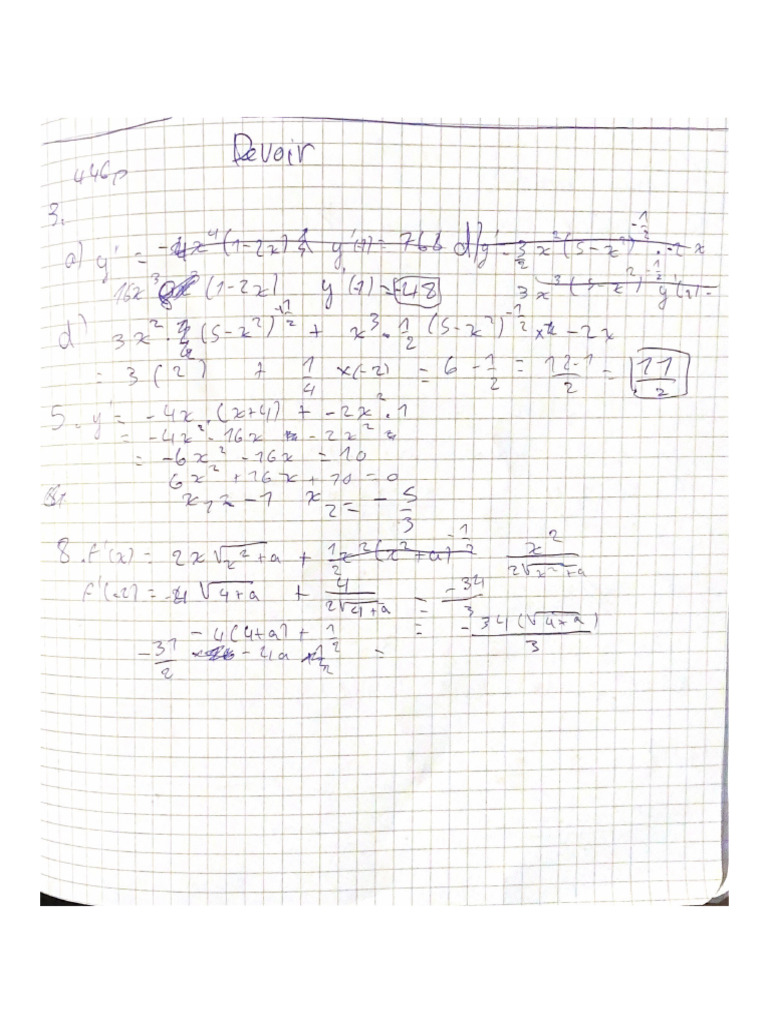 Devoir
446p
3.
a) y' = -4x⁴(1-2x) y'(1) = 766 d) y' - 3/2 x²(5-x²)^(-1/2) . -2x
16x³ (1-2x) y'(-1) = -48 3x³(5-x²)^(-1/2) y'(2) =
d) 3x² . (5-x²)^(1/2) + x³ . 1/2 (5-x²)^(-1/2) x - 2x
= 3(2) + 1/4 x(-2) = 6 - 1/2 = (12-1)/2 = 11/2
5. y' = -4x . (x+4) + -2x² . 1
= -4x² - 16x - 2x²
= -6x² - 16x = 10
6x² + 16x + 10 = 0
x₁ = -1 x₂ = - 5/3
8. f'(x) = 2x√(x²+a) + 1/2 x²(x²+a)^(-1/2) x²/(2√(x²+a))
f'(-2) = -4√(4+a) + 4/(2√(4+a)) = -34/3
-4(4+a) + 1/2 = -34(√(4+a))/3
-31/2 - 4a =